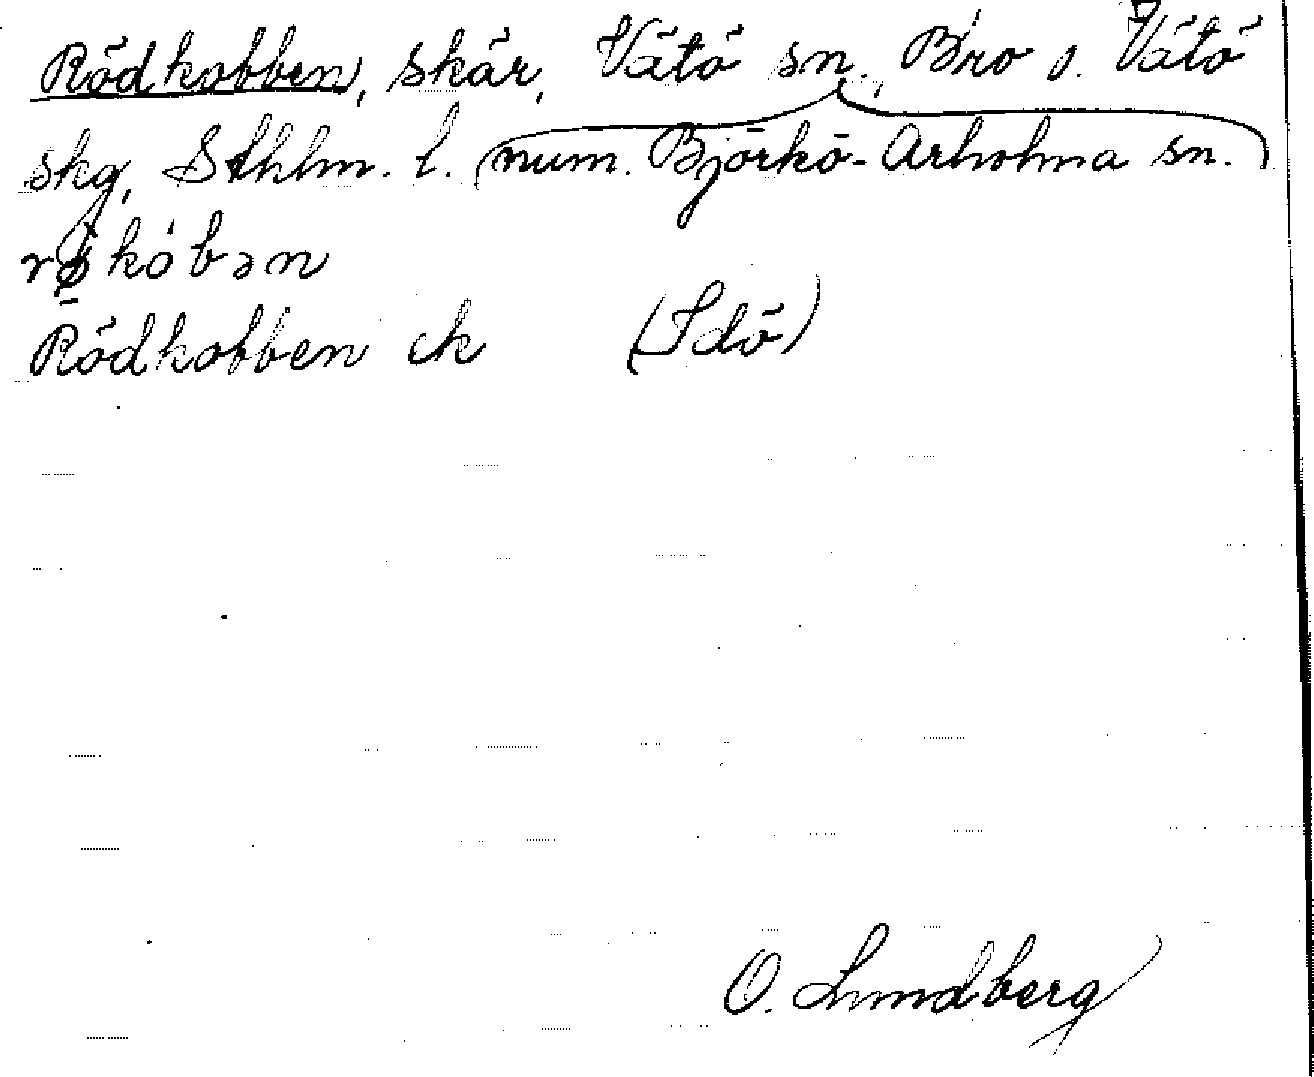 Rödkobben, skär, Vätö sn, Bro o. Vätö
skg, Sthlm. l. (num. Björkö-Arholma sn.)
Rödkobben ek (Idö)
O. Lundberg